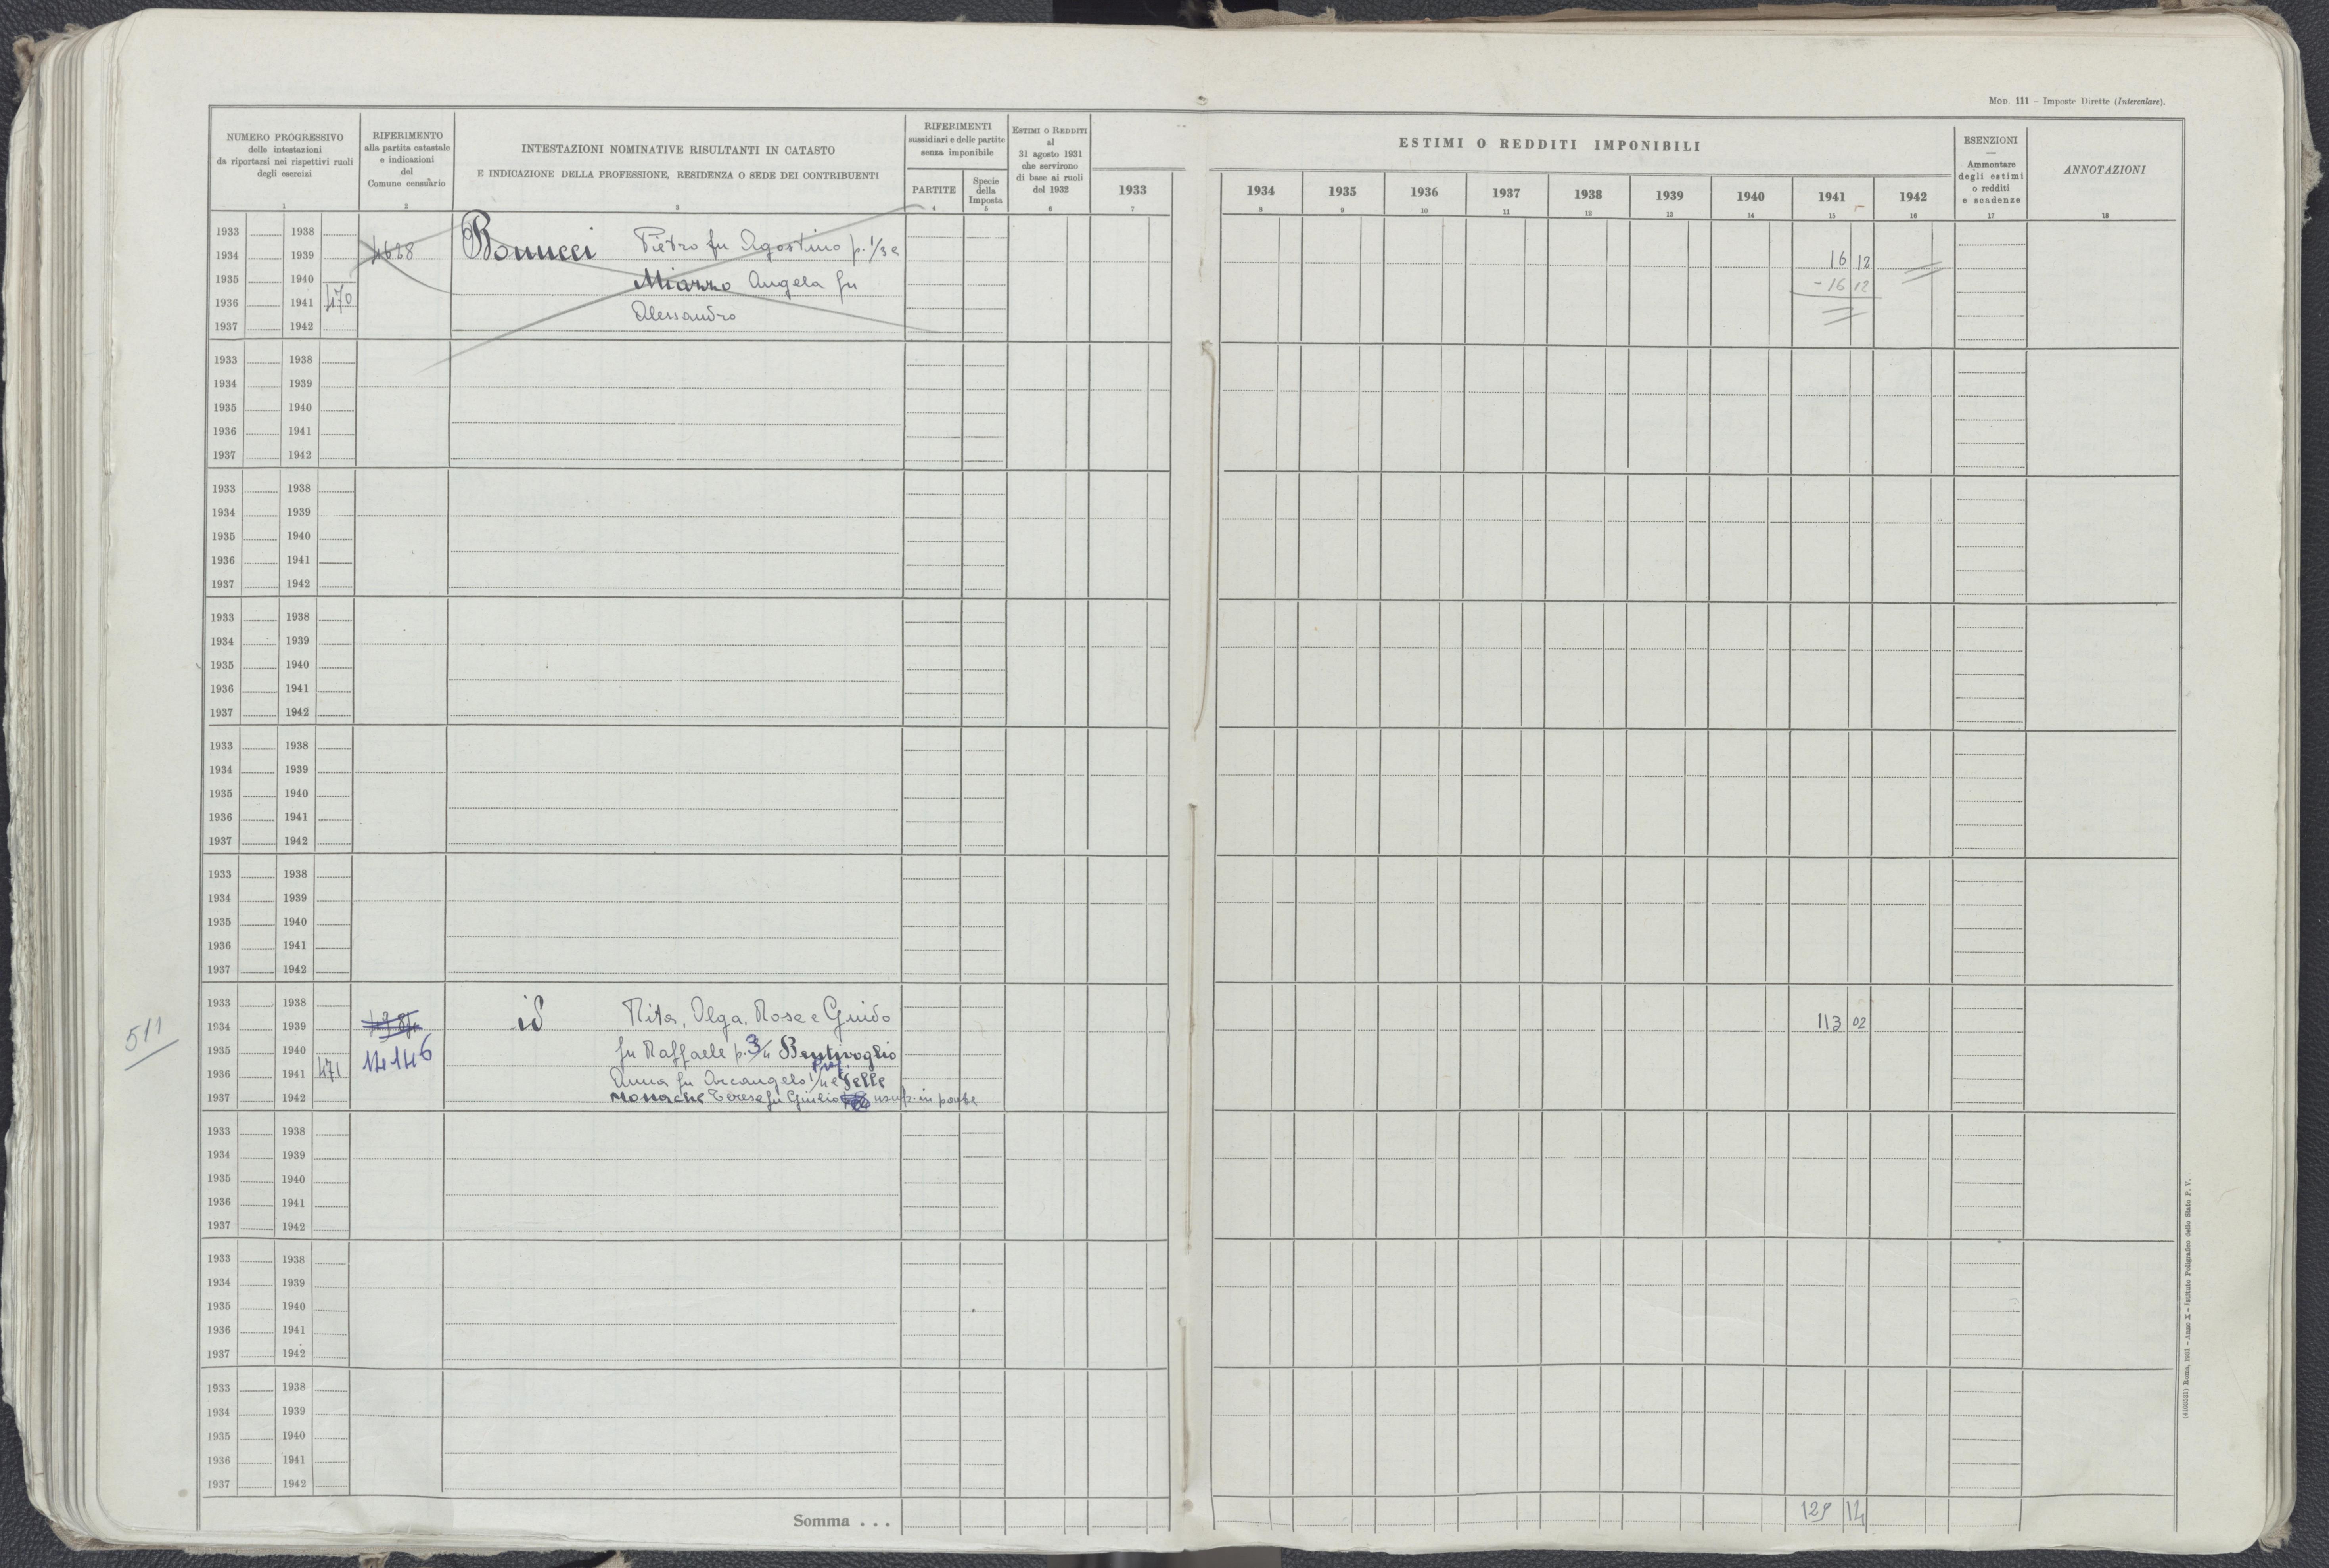 MOD. 111 – Imposte Dirette (Intercalare).
NUMERO PROGRESSIVO
delle intestazioni
da riportarsi nei rispettivi ruoli
degli esercizi
1
RIFERIMENTO
alla partita catastale
e indicazioni
del
Comune censuario
2
INTESTAZIONI NOMINATIVE RISULTANTI IN CATASTO
E INDICAZIONE DELLA PROFESSIONE, RESIDENZA O SEDE DEI CONTRIBUENTI
3
RIFERIMENTI
sussidiari e delle partite
senza imponibile
PARTITE
4
Specie
della
Imposta
5
ESTIMI O REDDITI
al
31 agosto 1931
che servirono
di base ai ruoli
del 1932
6
1933
7
ESTIMI O REDDITI IMPONIBILI
1934 1935 1936 1937 1938 1939 1940 1941 1942
8 9 10 11 12 13 14 15 16
ESENZIONI
—
Ammontare
degli estimi
o redditi
e scadenze
17
ANNOTAZIONI
18
1933 1938
1934 1939 4628 Bonucci Pietro fu Agostino p. 1/3 e 16 12
1935 1940 Miozzo Angela fu - 16 12
1936 1941 470
1937 1942 Alessandro
1933 1938
1934 1939
1935 1940
1936 1941
1937 1942
1933 1938
1934 1939
1935 1940
1936 1941
1937 1942
1933 1938
1934 1939
1935 1940
1936 1941
1937 1942
1933 1938
1934 1939
1935 1940
1936 1941
1937 1942
1933 1938
1934 1939
1935 1940
1936 1941
1937 1942
511
1933 1938
1934 1939 id Rita, Olga, Rosa e Guido 113 02
1935 1940 14146 fu Raffaele p. 3/4 Bentivoglio
1936 1941 471 Anna fu Arcangelo 1/4 e Delle
1937 1942 Monache Teresa fu Giulio usuf. in parte
1933 1938
1934 1939
1935 1940
1936 1941
1937 1942
1933 1938
1934 1939
1935 1940
1936 1941
1937 1942
1933 1938
1934 1939
1935 1940
1936 1941
1937 1942
Somma . . . 129 14
Roma, 1931 – Anno X – Istituto Poligrafico dello Stato P. V.